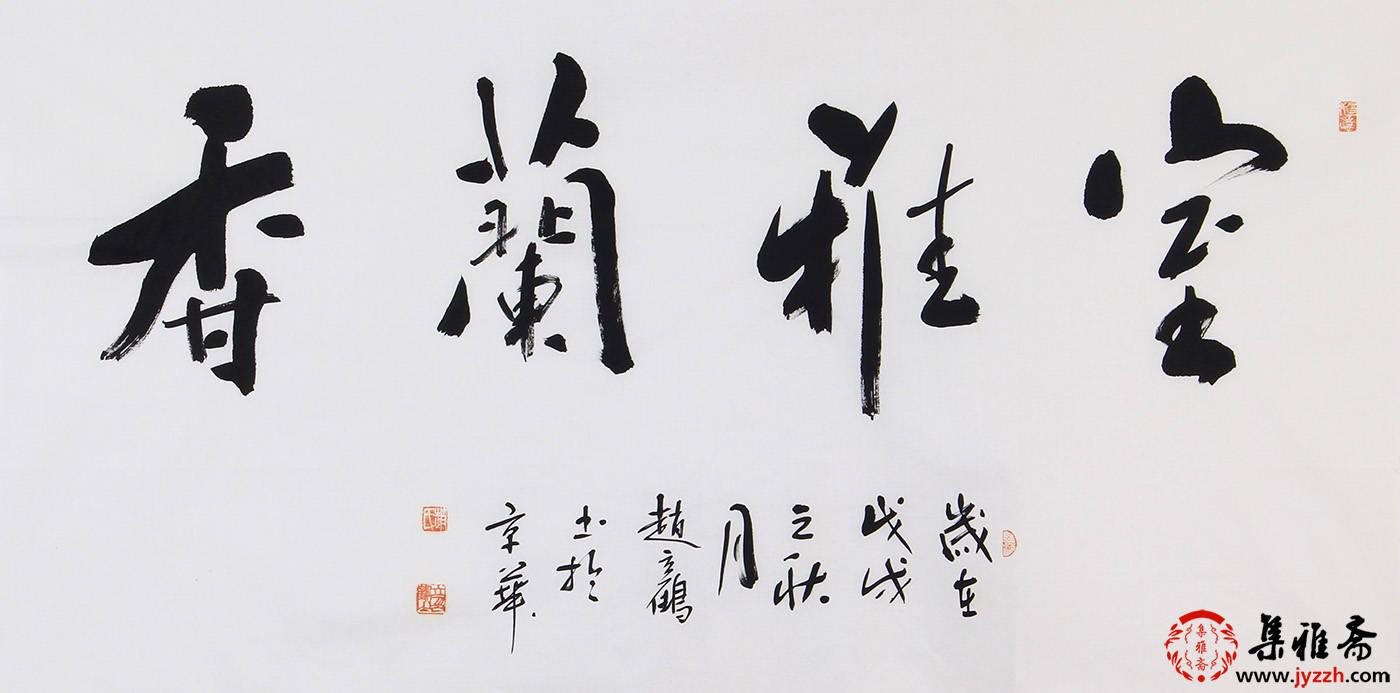 室雅蘭香
歲在
戊戌
之秋
月
趙立鶴
书於
京華
集雅斋
集雅斋
www.jyzzh.com